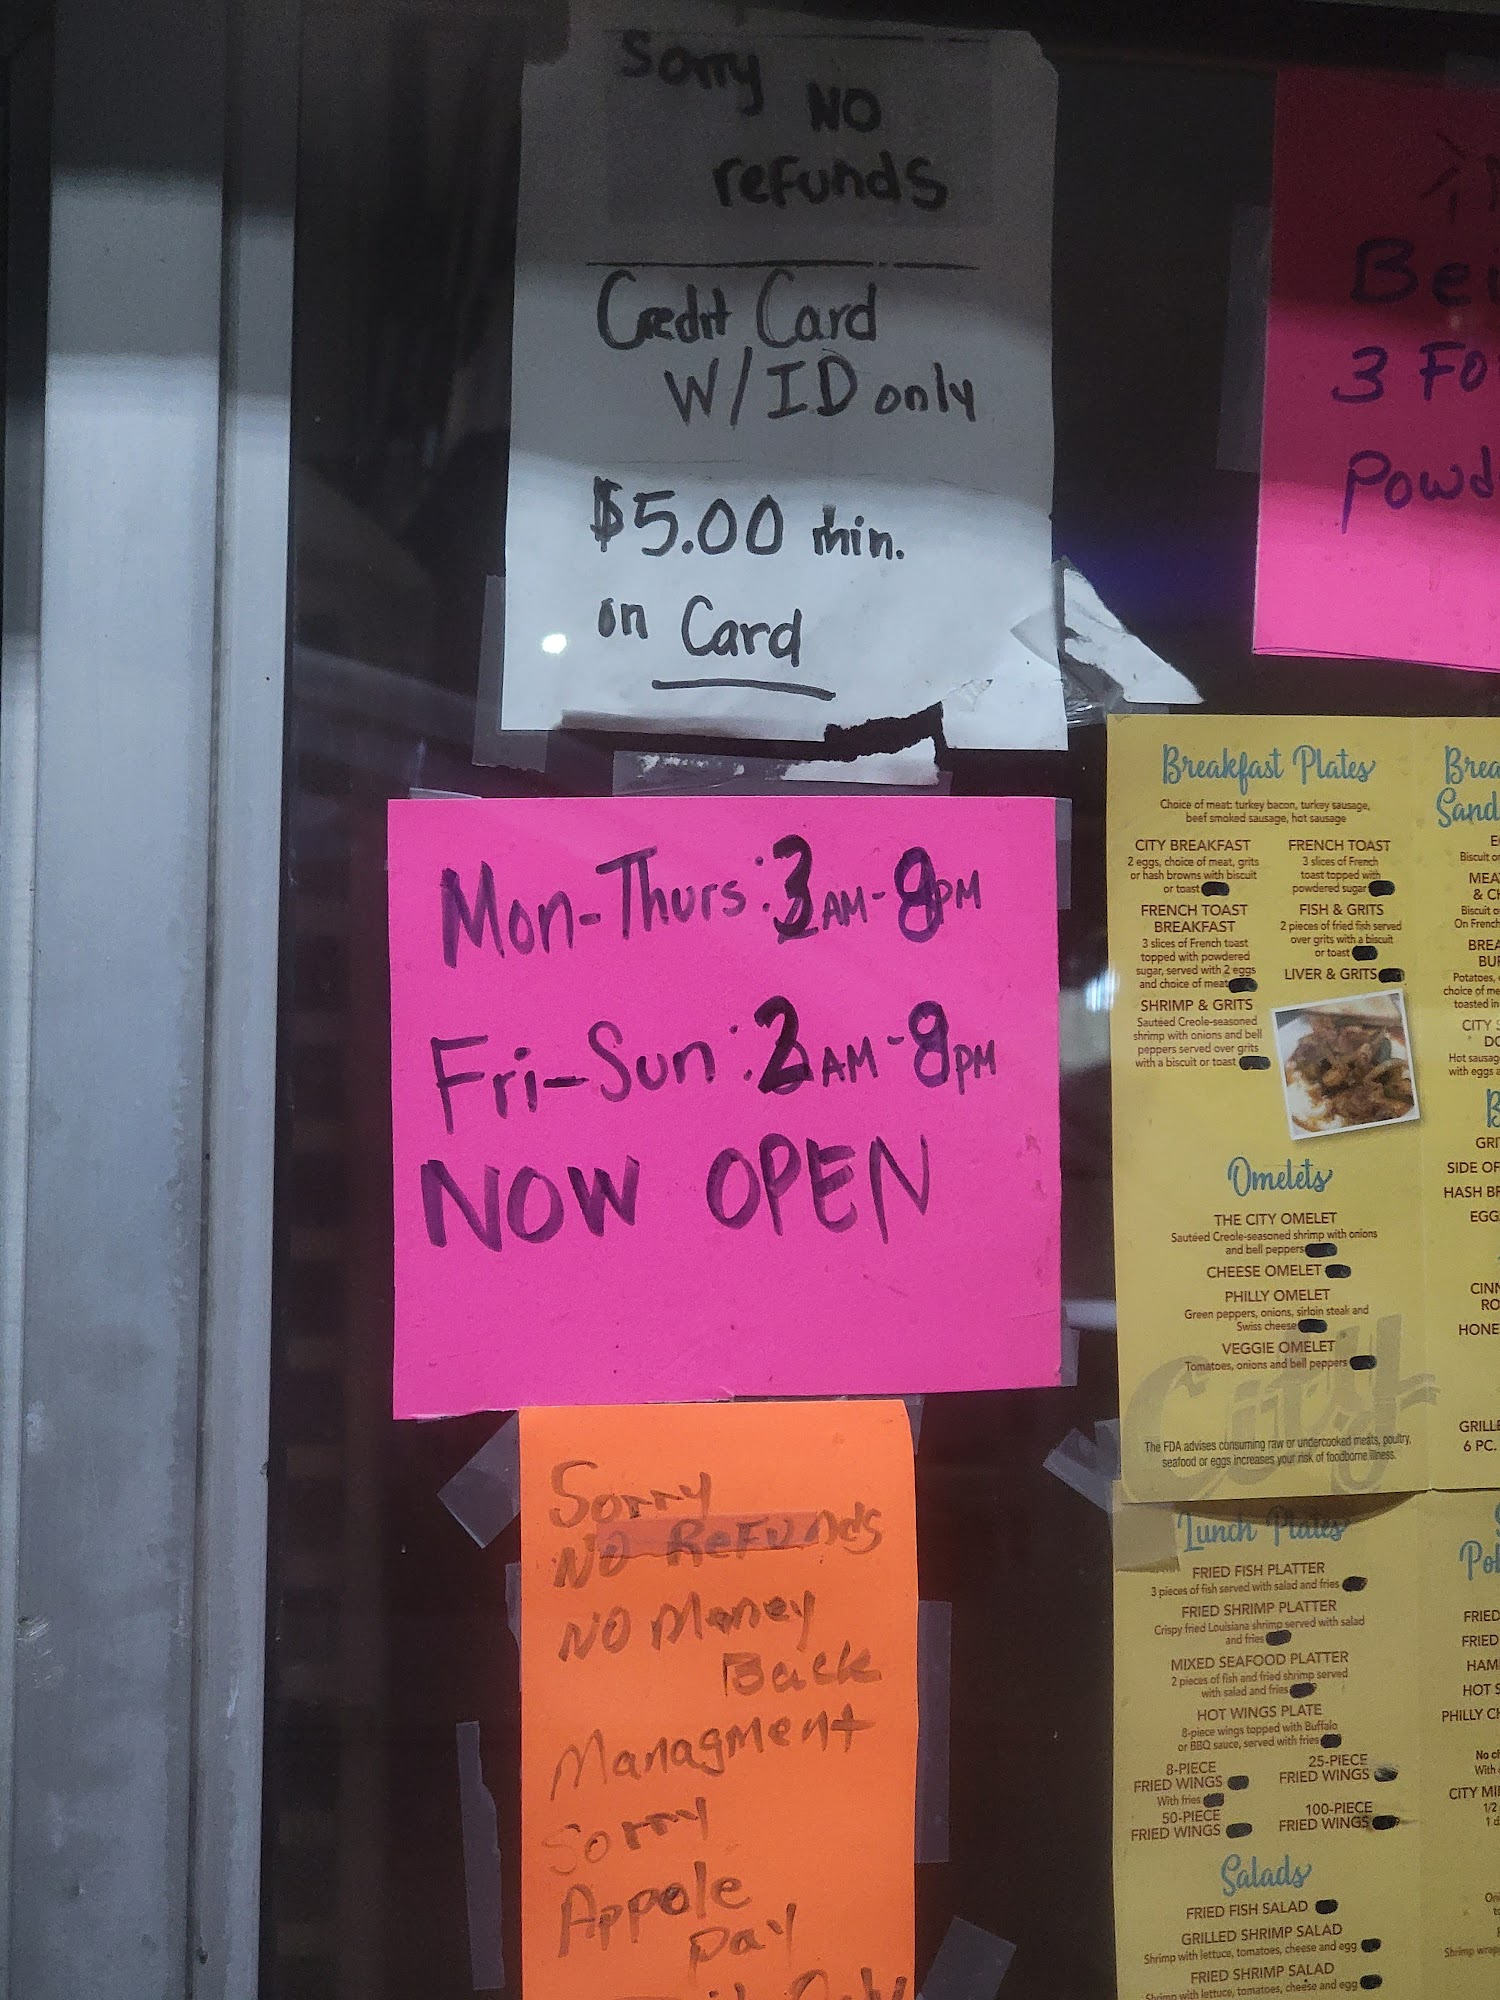 Sorry NO
refunds
Credit Card
W/ID only
$5.00 min.
on Card
3 Fo
Mon-Thurs: 3AM-8PM
Fri-Sun: 2AM-8PM
NOW OPEN
Sorry
NO ReFUNds
NO Money
Back
Managment
Sorry
Appole
Pay
Only
Breakfast Plates
Choice of meat: turkey bacon, turkey sausage,
beef smoked sausage, hot sausage
CITY BREAKFAST
2 eggs, choice of meat, grits
or hash browns with biscuit
or toast
FRENCH TOAST
BREAKFAST
3 slices of French toast
topped with powdered
sugar, served with 2 eggs
and choice of meat
SHRIMP & GRITS
Sautéed Creole-seasoned
shrimp with onions and bell
peppers served over grits
with a biscuit or toast
FRENCH TOAST
3 slices of French
toast topped with
powdered sugar
FISH & GRITS
2 pieces of fried fish served
over grits with a biscuit
or toast
LIVER & GRITS
Omelets
THE CITY OMELET
Sautéed Creole-seasoned shrimp with onions
and bell peppers
CHEESE OMELET
PHILLY OMELET
Green peppers, onions, sirloin steak and
Swiss cheese
VEGGIE OMELET
Tomatoes, onions and bell peppers
City
The FDA advises consuming raw or undercooked meats, poultry,
seafood or eggs increases your risk of foodborne illness.
Lunch Plates
FRIED FISH PLATTER
3 pieces of fish served with salad and fries
FRIED SHRIMP PLATTER
Crispy fried Louisiana shrimp served with salad
and fries
MIXED SEAFOOD PLATTER
2 pieces of fish and fried shrimp served
with salad and fries
HOT WINGS PLATE
8-piece wings topped with Buffalo
or BBQ sauce, served with fries
8-PIECE
FRIED WINGS
With fries
25-PIECE
FRIED WINGS
50-PIECE
FRIED WINGS
100-PIECE
FRIED WINGS
Salads
FRIED FISH SALAD
GRILLED SHRIMP SALAD
Shrimp with lettuce, tomatoes, cheese and egg
FRIED SHRIMP SALAD
Shrimp with lettuce, tomatoes, cheese and egg
Biscuit
On French
CITY
Hot
with eggs
SIDE OF
HASH
6 PC.
FRIED
FRIED
HOT
PHILLY
CITY